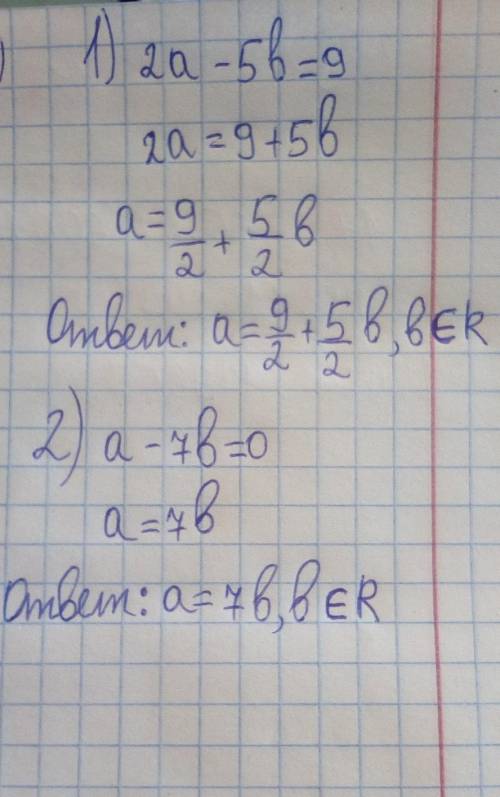 1) 2a - 5b = 9
2a = 9 + 5b
a = 9/2 + 5/2 b
Ответ: a = 9/2 + 5/2 b, b ∈ R
2) a - 7b = 0
a = 7b
Ответ: a = 7b, b ∈ R